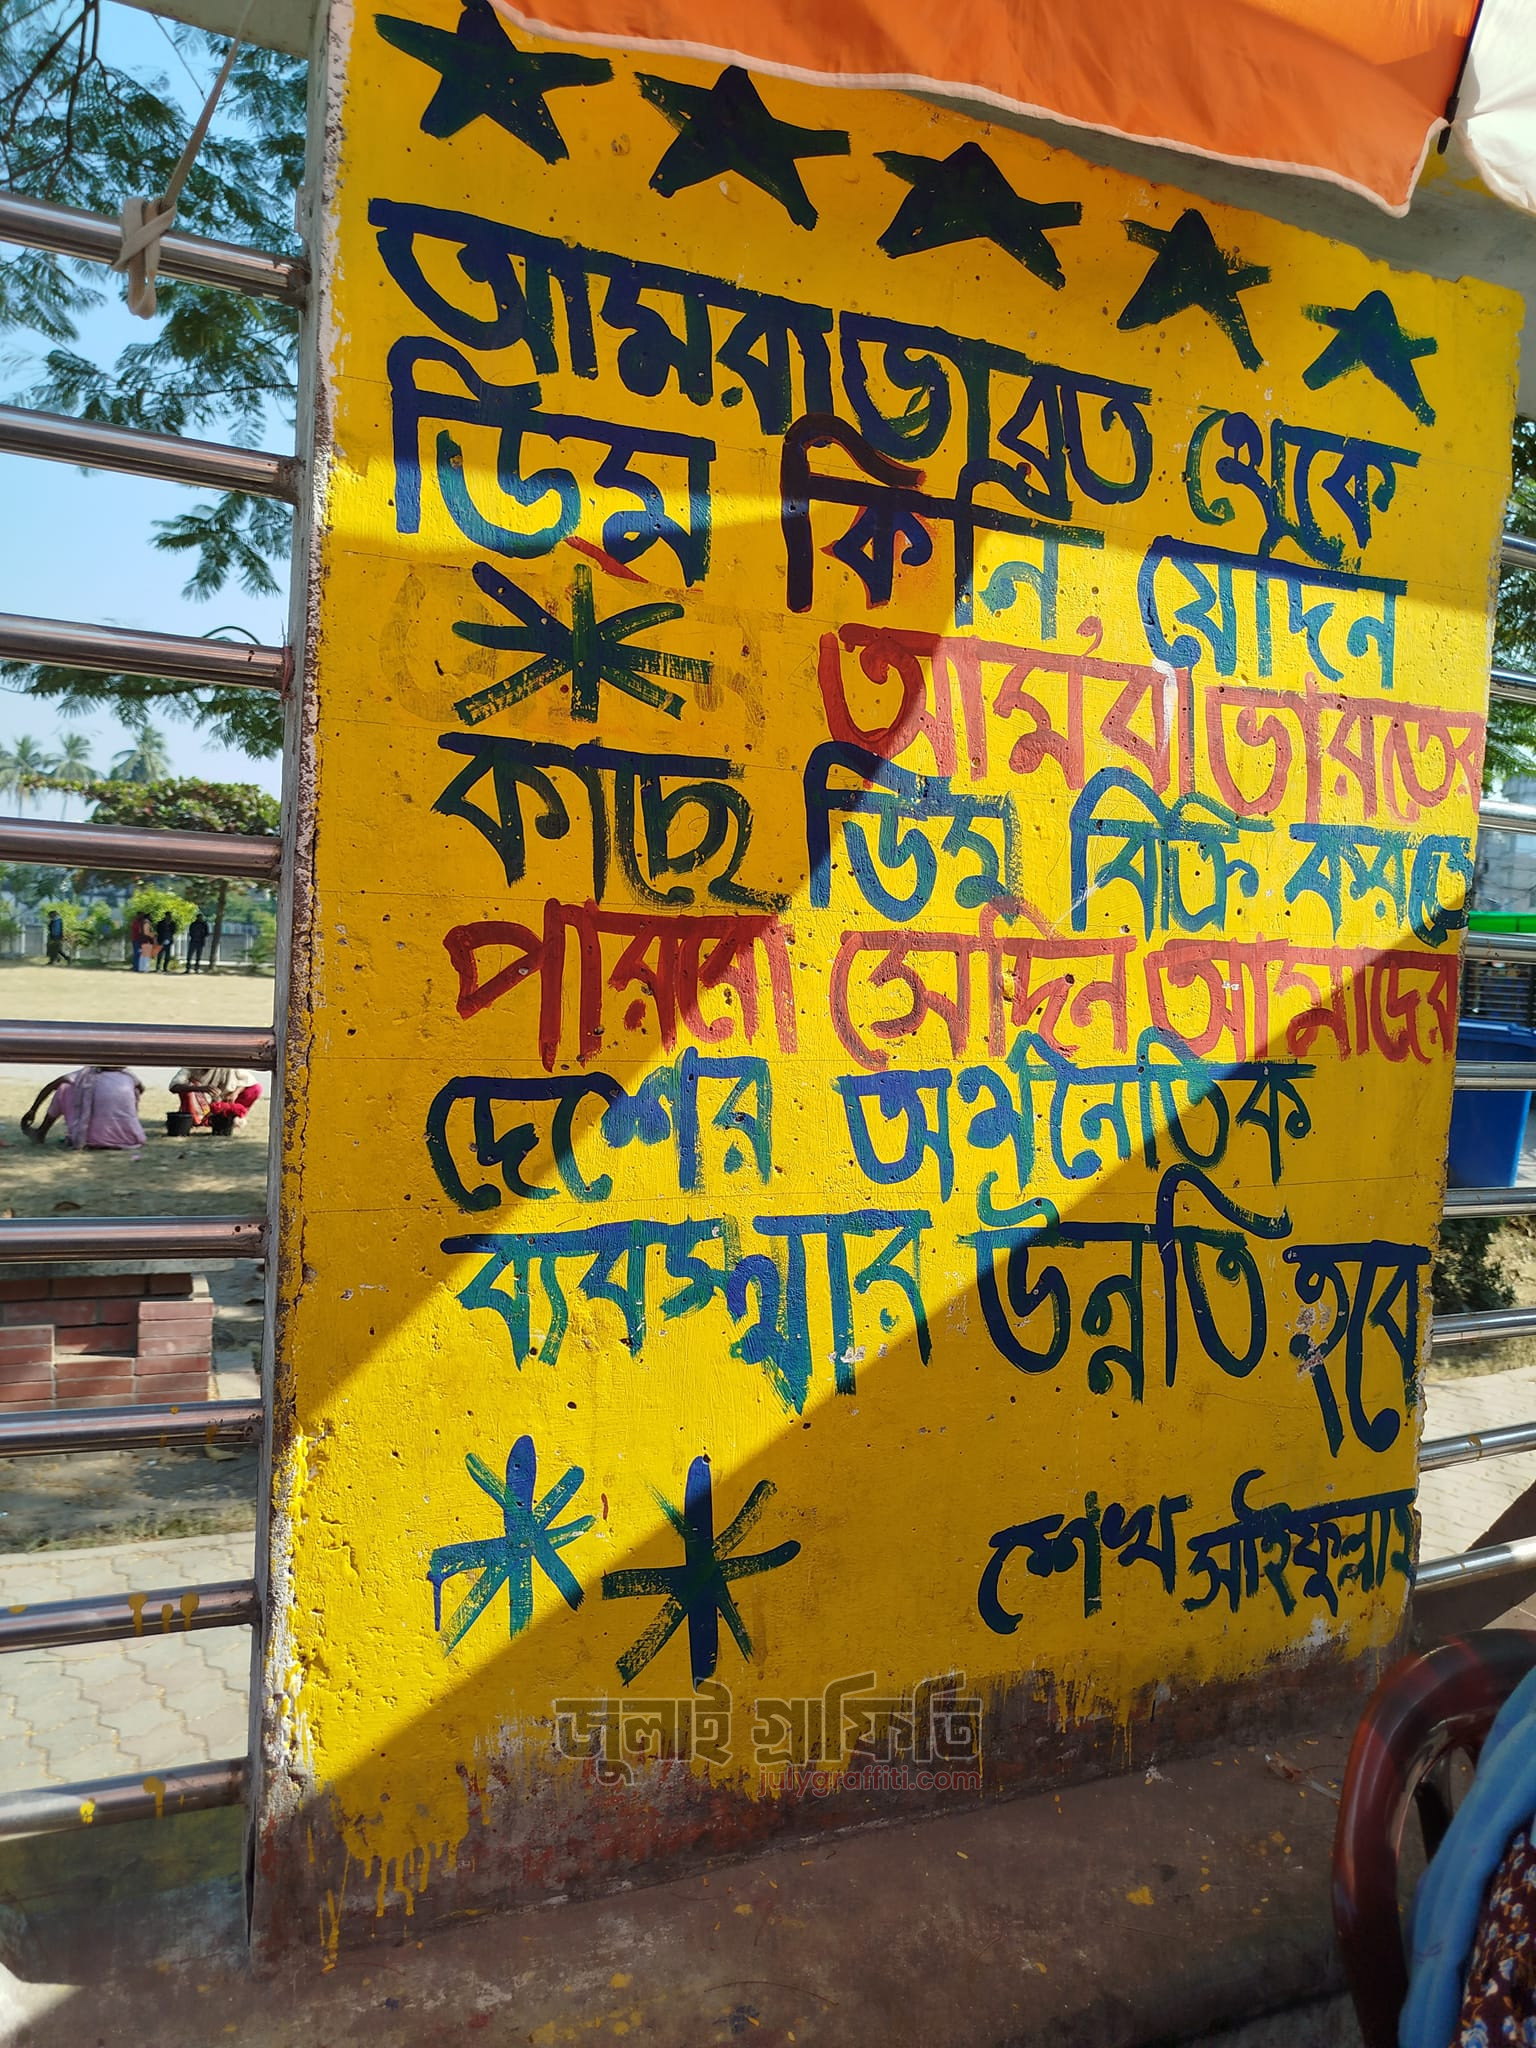 আমরা ভারত থেকে
ডিম কিনি যেদিন
আমরা ভারতের
কাছে ডিম বিক্রি করতে
পারবো সেদিন আমাদের
দেশের অর্থনৈতিক
ব্যবস্থার উন্নতি হবে
শেখ সাইফুল্লাহ
জুলাই গ্রাফিতি
julygraffiti.com